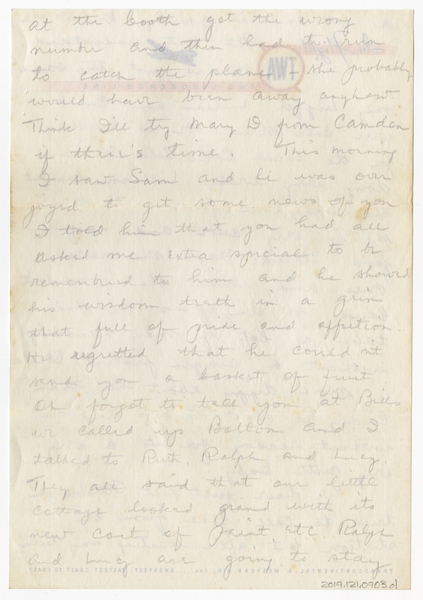 at the booth get the wrong
number and then had to run
to catch the plane. She probably
would have been away anyhow.
Think I'll try Mary D from Camden
if there's time. This morning
I saw Sam and he was over
joyed to get some news of you
I told him that you had all
asked me extra special to be
remembered to him and he showed
his wisdom tooth in a grin
that full of pride and affection.
He regretted that he couldn't
send you a basket of fruit
Oh forgot to tell you at Bills
we called up Boston and I
talked to Ruth, Ralph and Lucy.
They all said that our little
cottage looked grand with its
new coat of paint etc. Ralph
and Lucy are going to stay
2019.121.0903.d